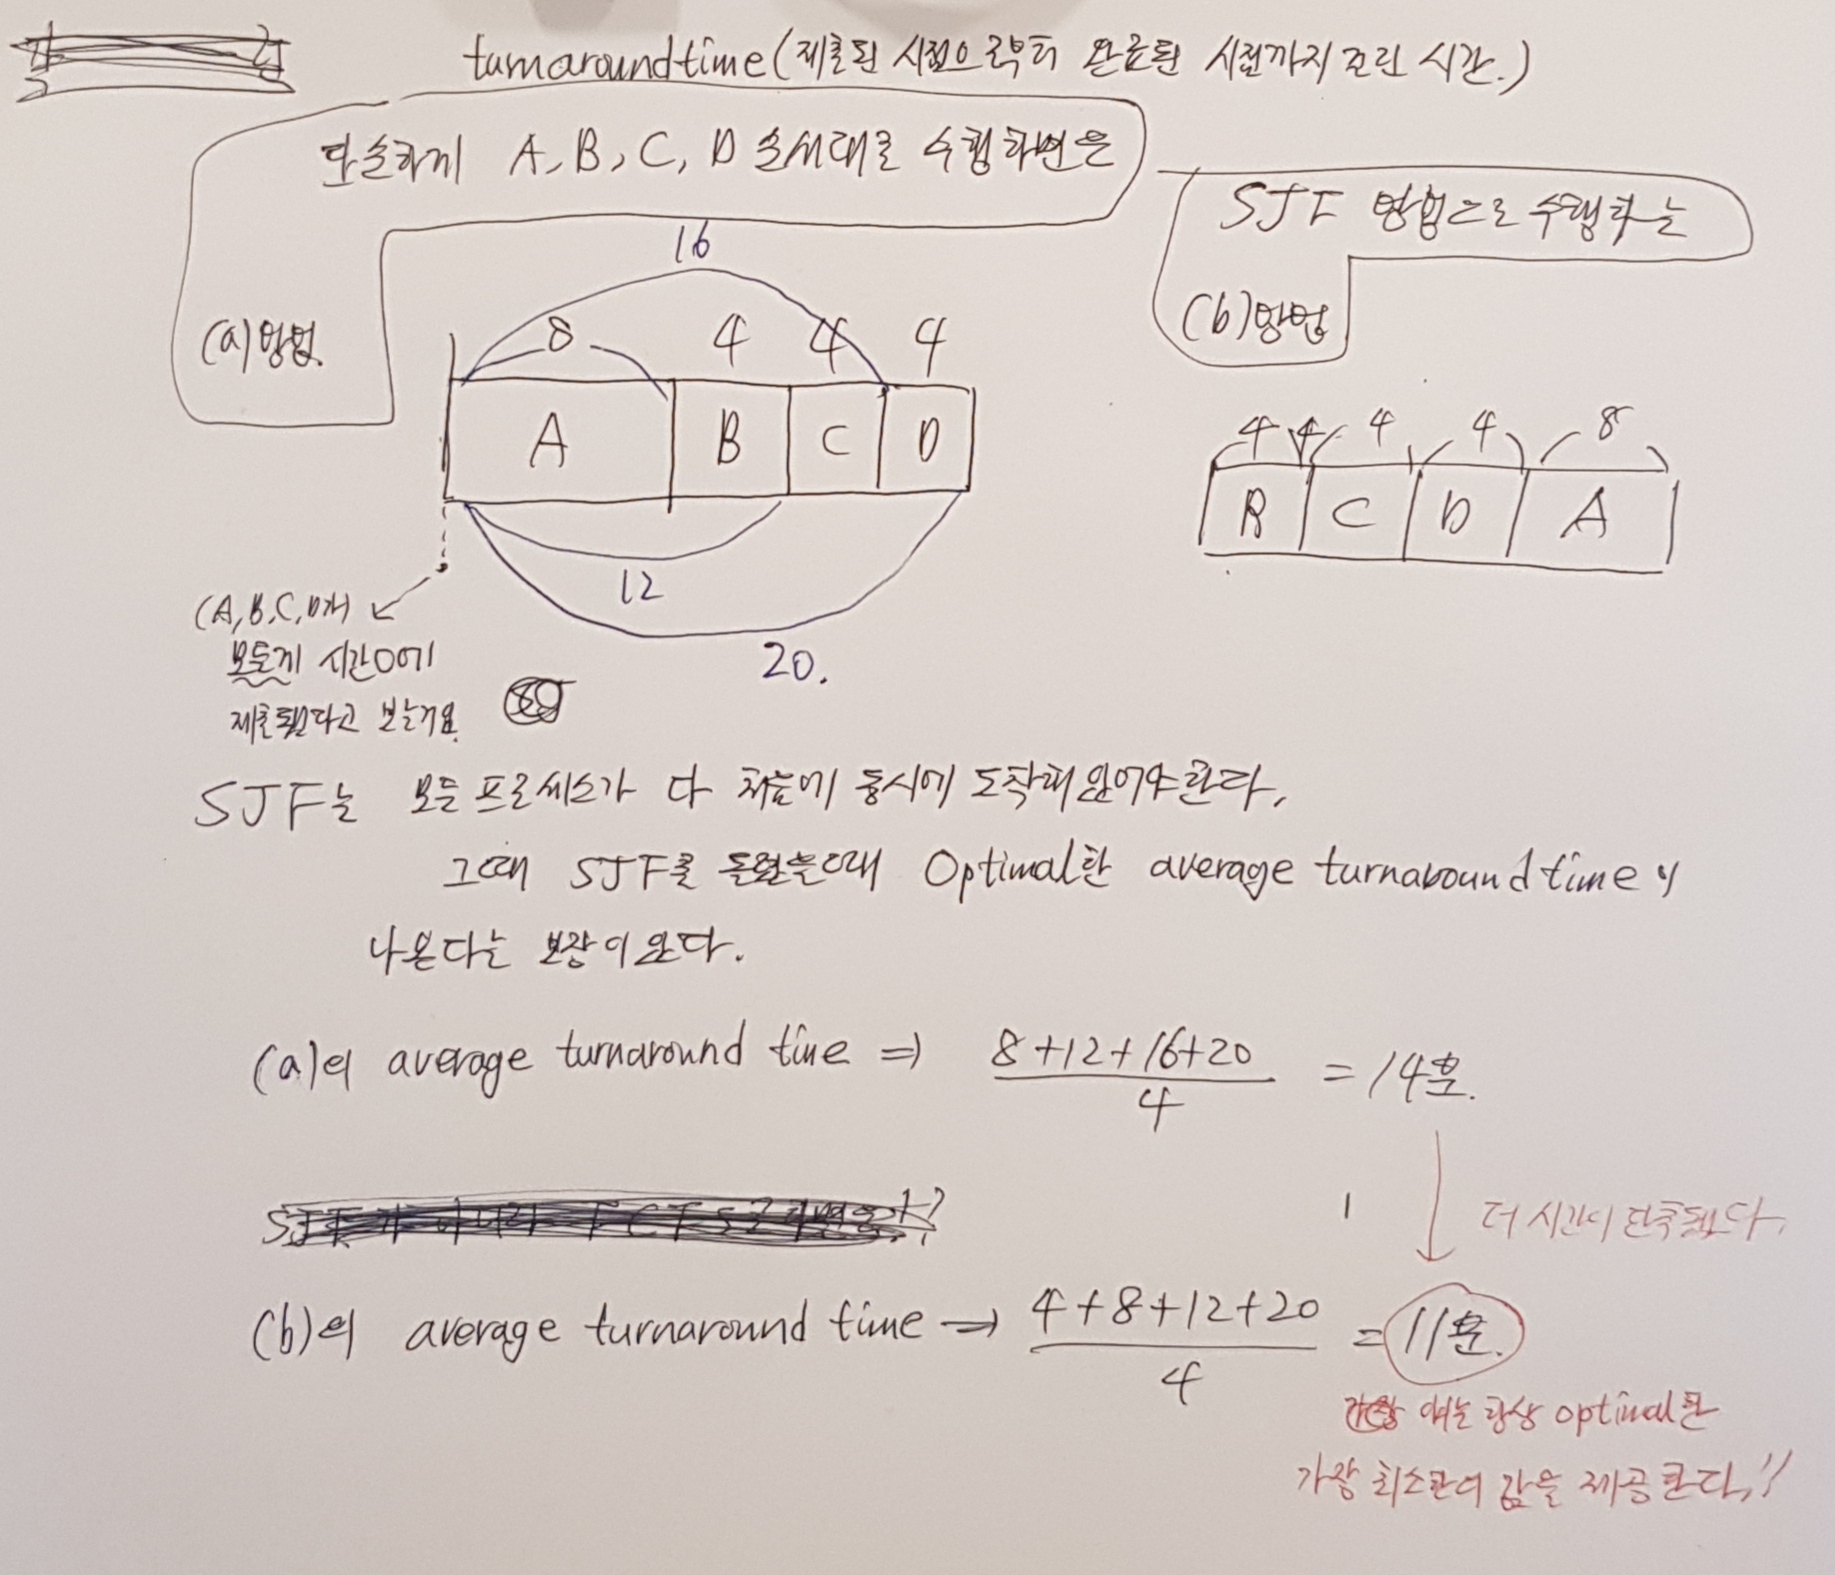 turnaround time (제출된 시점으로부터 완료된 시점까지 걸린 시간.)
단순하게 A, B, C, D 순서대로 수행하면은
(a)방법.
16
8 4 4 4
A B C D
12
20.
(A, B, C, D가)
모든게 시간0에
제출됐다고 보는거요.
SJF 방법으로 수행하는
(b)방법
4 4 4 4 8
B C D A
SJF는 모든 프로세스가 다 처음에 동시에 도착해 있어야 한다.
그때 SJF를 돌렸을때 Optimal한 average turnaround time이
나온다는 보장이 있다.
(a)의 average turnaround time ⇒ 8+12+16+20 / 4 = 14분.
더 시간이 단축됐다.
(b)의 average turnaround time → 4+8+12+20 / 4 = 11분.
얘는 항상 optimal한
가장 최소한의 값을 제공한다!!